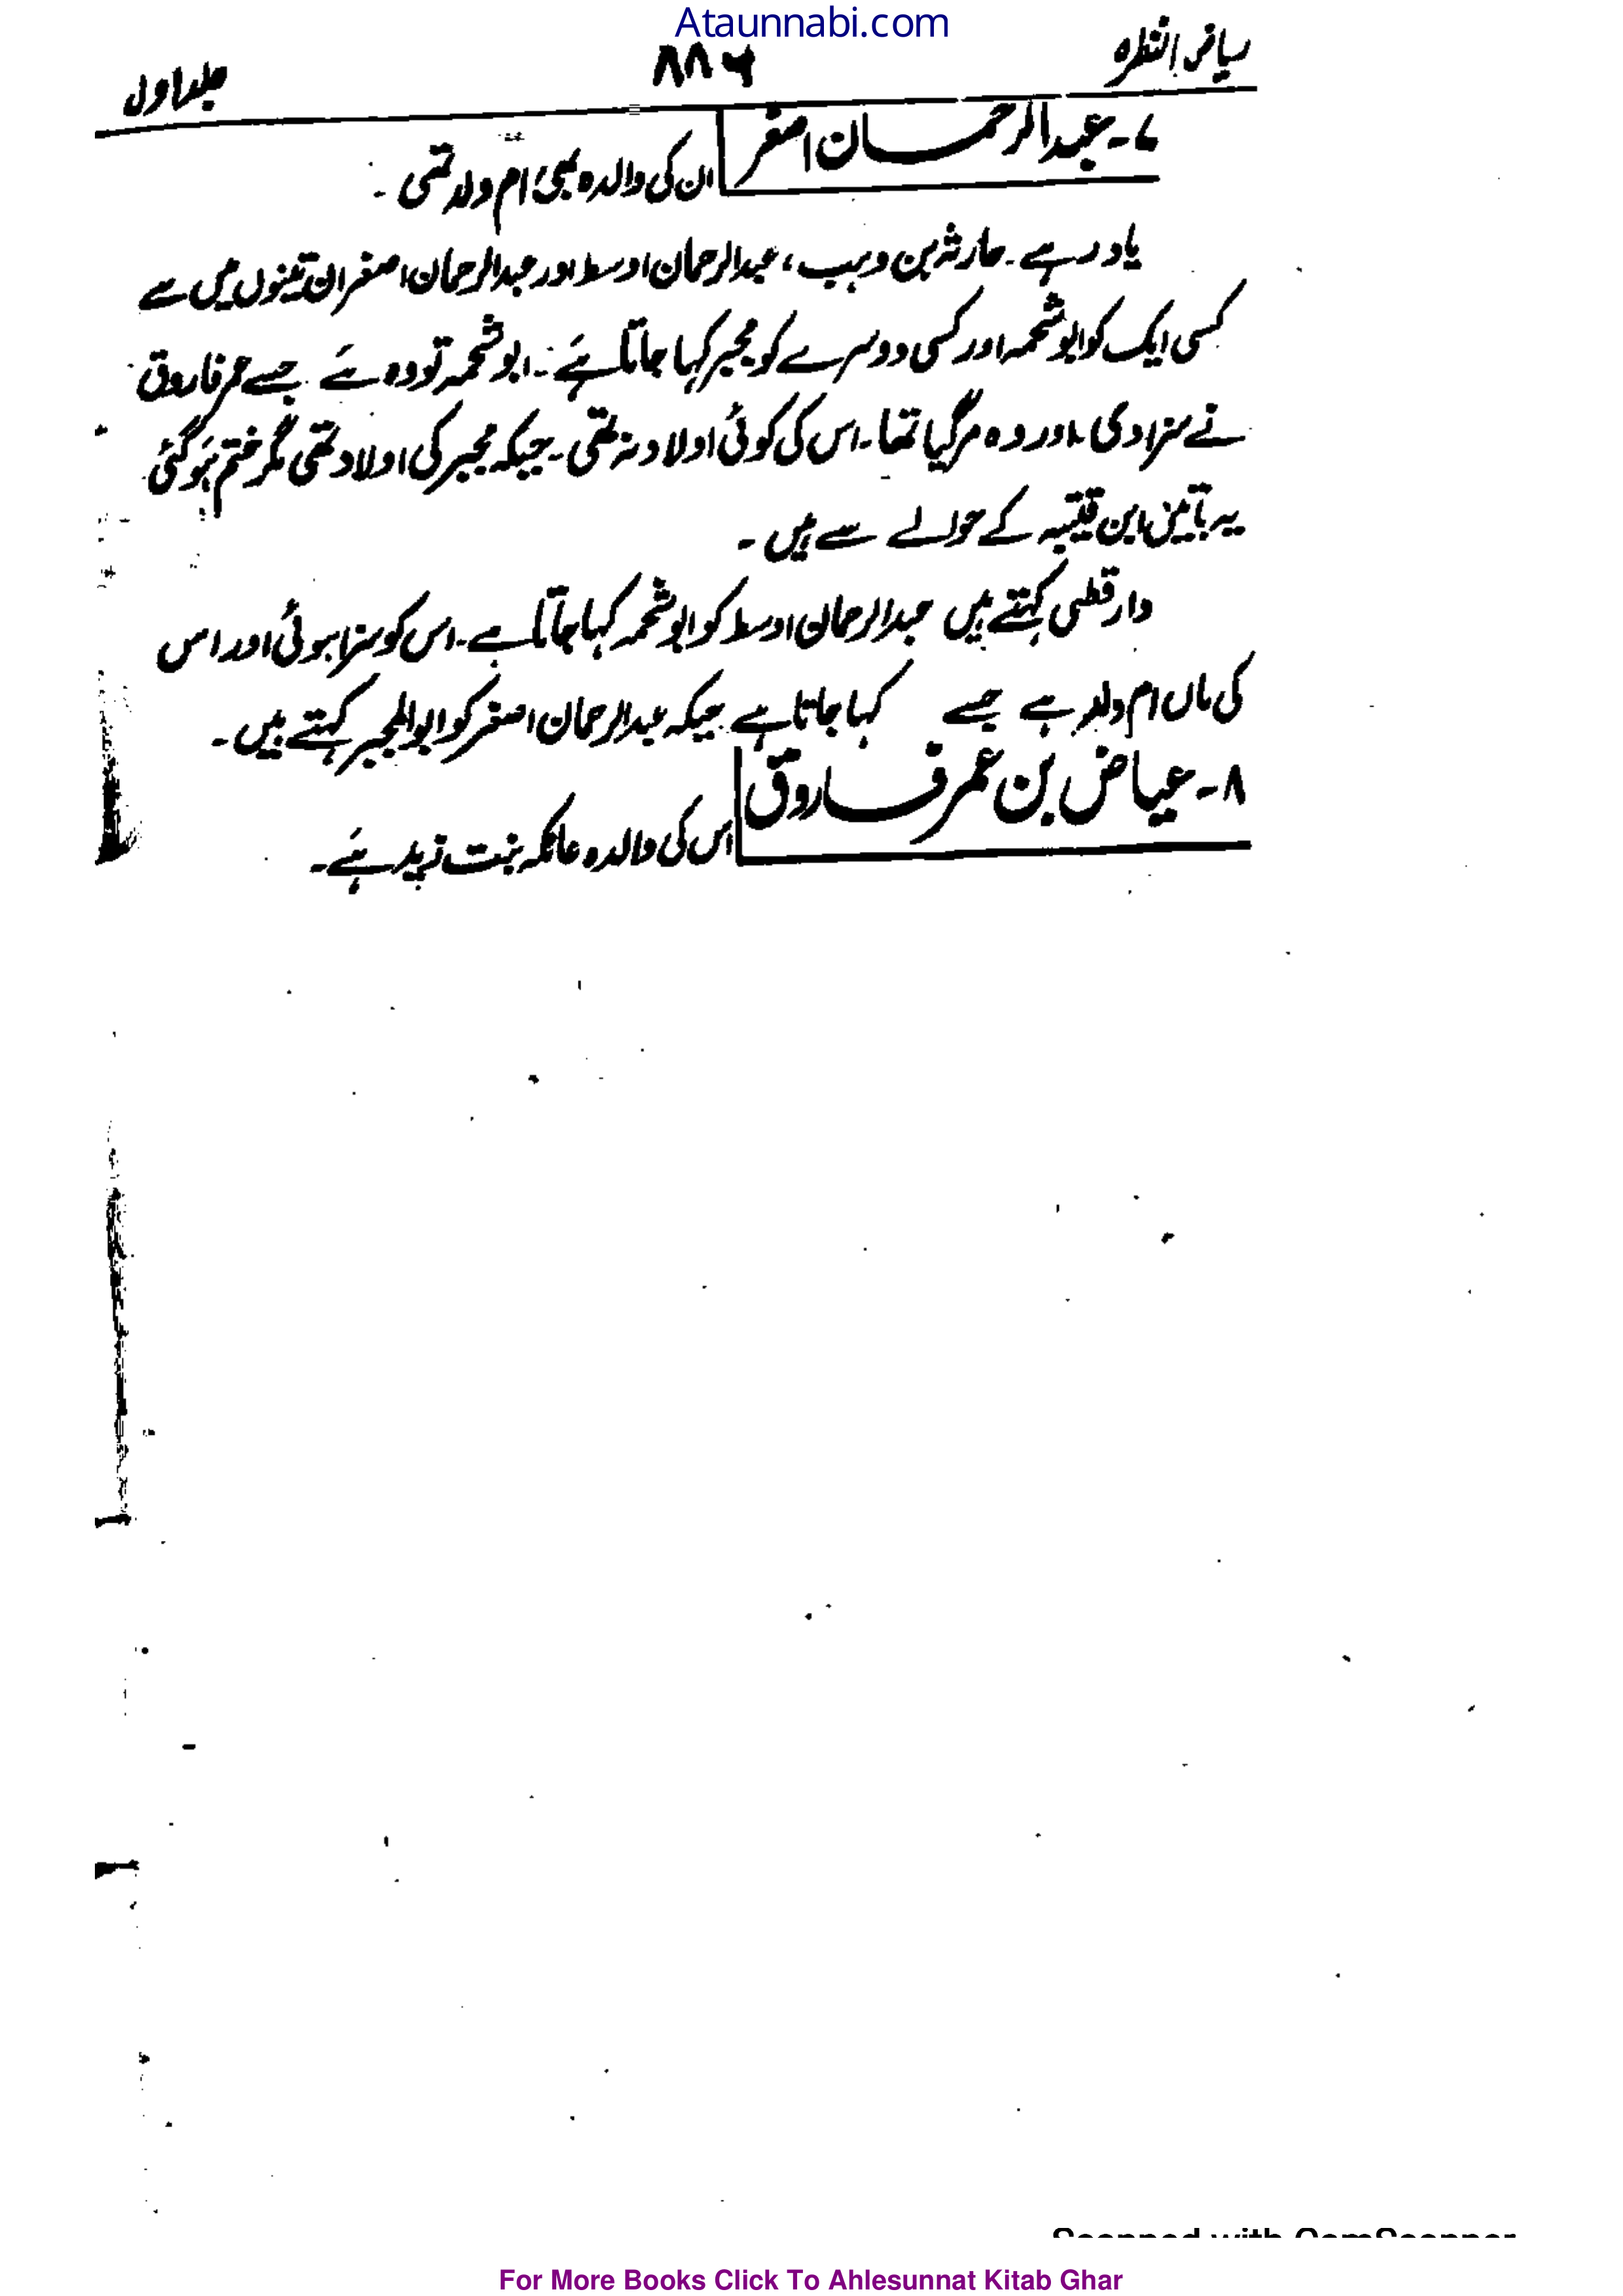 Ataunnabi.com
ریاض النظرہ ۸۸۶ جلد اول
۷۔ عبدالرحمان اصغر ان کی والدہ بھی ام ولد تھی ۔
یاد رہے ۔ حارثہ بن وہب، عبدالرحمان اوسط اور عبدالرحمان اصغر ان تینوں میں سے
کسی ایک کو ابو شحمہ اور کسی دوسرے کو مجبر کہا جاتا ہے ۔ ابو شحمہ تو وہ ہے جسے عمر فاروق
نے سزا دی اور وہ مر گیا تھا ۔ اس کی کوئی اولاد نہ تھی ۔ جبکہ مجبر کی اولاد تھی مگر ختم ہو گئی
یہ باتیں ابن قتیبہ کے حوالے سے ہیں ۔
دارقطنی کہتے ہیں عبدالرحمان اوسط کو ابو شحمہ کہا جاتا ہے ۔ اس کو سزا ہوئی اور اس
کی ماں ام ولد ہے جسے کہا جاتا ہے جبکہ عبدالرحمان اصغر کو ابو المجبر کہتے ہیں ۔
۸۔ عیاض بن عمر فاروق اس کی والدہ عاتکہ بنت زید ہے ۔
Scanned with CamScanner
For More Books Click To Ahlesunnat Kitab Ghar